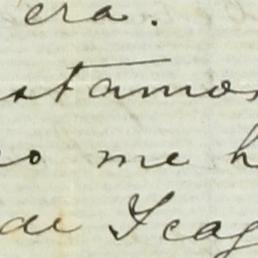 era.
stamos
ro me h
de Icag